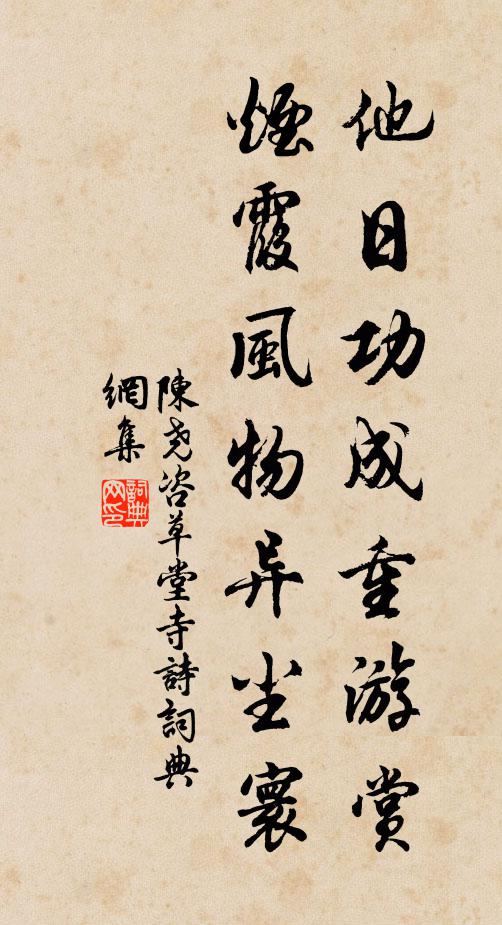 他日功成重游赏
煙霞風物异尘寰
陳堯咨草堂寺詩詞典
網集
詞典
网印